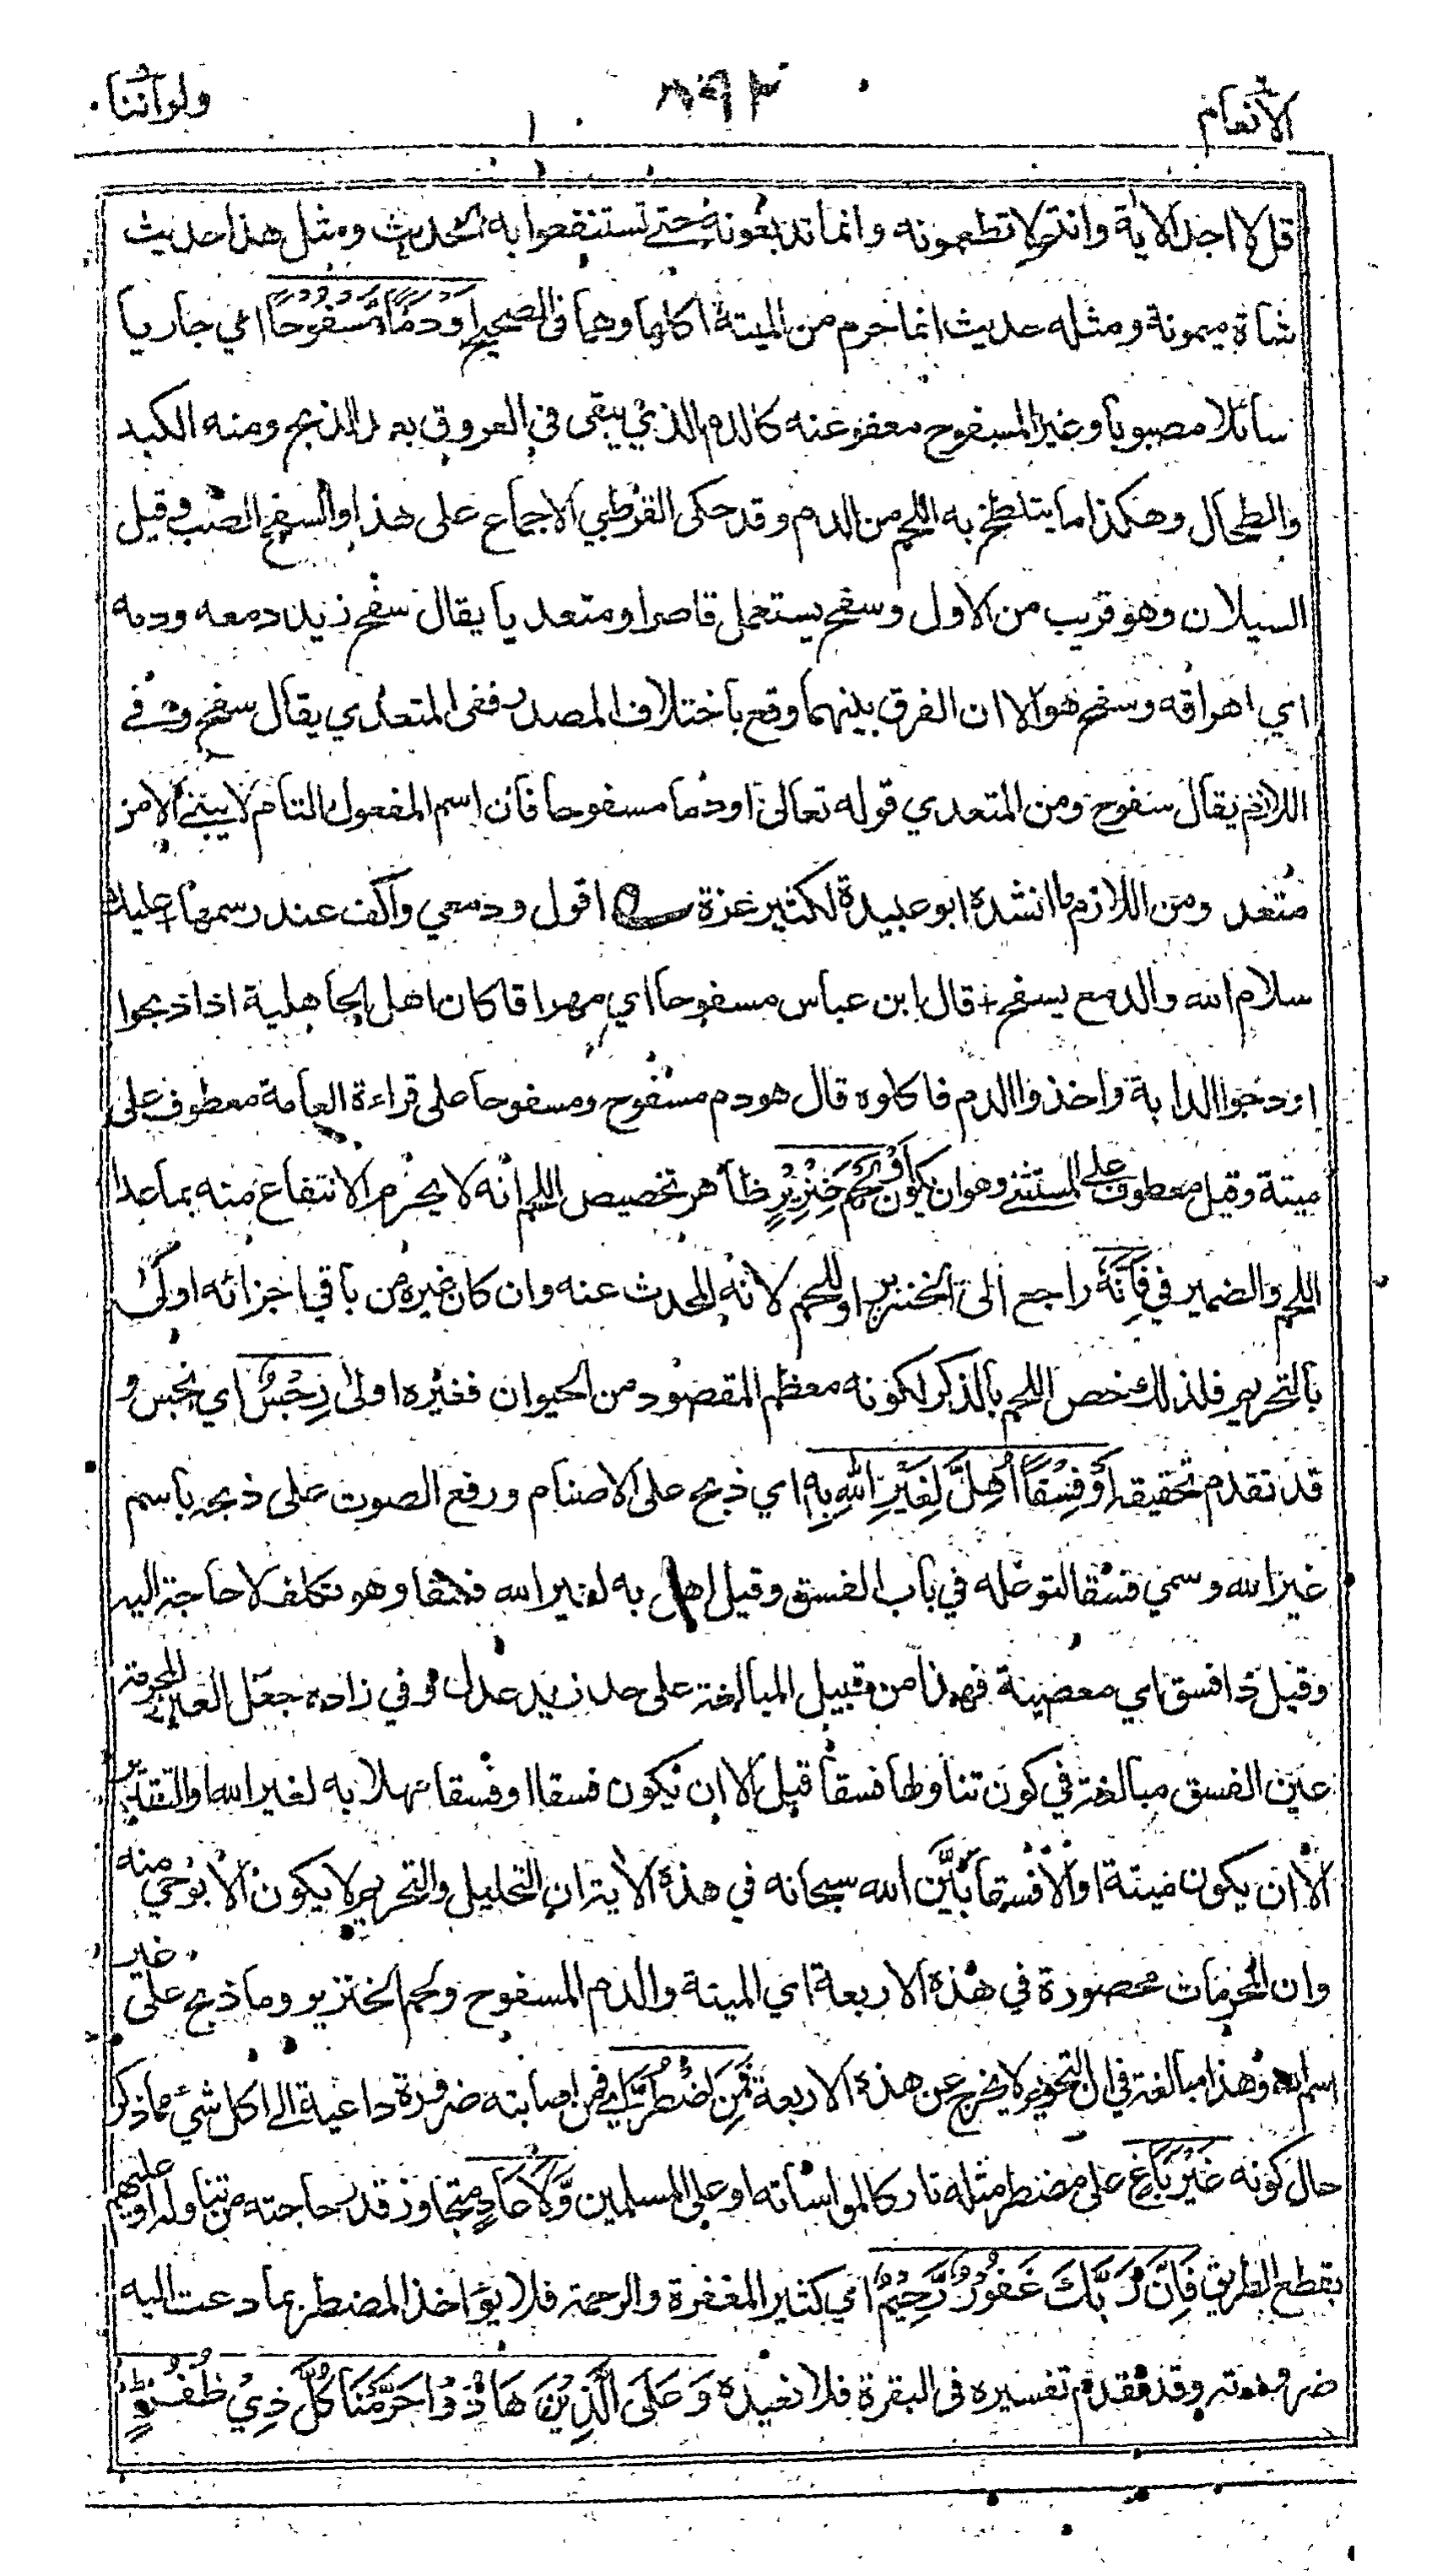 الانعام
ولواننا
قل لا اجد الاية وانتم لا تطعمونه وانما تدبغونه حتے تستنفعوا به الحديث ومثل هذا حديث
شاة ميمونة ومثله حديث انما حرم من الميتة اكلها وهما فى الصحيح اَوْدَمًا مَّسْفُوْحًا اي جاريا
سائلا مصبوبا وغير المسفوح معفو عنه كالدم الذي يبقى في العروق بعد الذبح ومنه الكبد
والطحال وهكذا ما يتلطخ به اللحم من الدم وقد حكى القرطبي الاجماع على هذا والسفح الصب وقيل
السيلان وهو قريب من الاول وسفح يستعمل قاصرا ومتعديا يقال سفح زيد دمعه ودمه
اي اهراقه وسفح هو الا ان الفرق بينهما وقع باختلاف المصدر ففى المتعدي يقال سفح وفے
اللازم يقال سفوح ومن المتعدي قوله تعالى اودما مسفوحا فان اسم المفعول التام لا يبنى الا من
متعد ومن اللازم ما انشده ابو عبيدة لكثير عزة اقول ودمعي واكف عند رسمها عليك
سلام الله والدمع يسفح قال ابن عباس مسفوحا اي مهراقا كان اهل الجاهلية اذا ذبحوا
اودجوا الدابة واخذوا الدم فاكلوه قال هو دم مسفوح ومسفوحا على قراءة العامة معطوف على
ميتة وقيل معطوف على المستثنے وهو ان يكون اَوْ لَحْمَ خِنْزِيْرٍ ظاهر تخصيص اللحم انه لا يحرم الانتفاع منه بما عدا
اللحم والضمير في فَاِنَّهٗ راجع الى الخنزير او للحم لانه المحدث عنه وان كان غيره من باقي اجزائه اولى
بالتحريم فلذلك خص اللحم بالذكر لكونه معظم المقصود من الحيوان فغيره اولى رِجْسٌ اي نجس و
قد تقدم تحقيقه اَوْ فِسْقًا اُهِلَّ لِغَيْرِ اللهِ بِهٖ اي ذبح على الاصنام ورفع الصوت على ذبحه باسم
غير الله وسمي فسقا لتوغله في باب الفسق وقيل اهل به لغير الله فسقا وهو تكلف لا حاجة اليه
وقيل ذا فسق اي معصية فهذا من قبيل المبالغة على حد زيد عدل وفي زاده جعل العين المحرمة
عين الفسق مبالغة في كون تناولها فسقا قيل الا ان يكون فسقا او فسقا مهلا به لغير الله والتقدير
الا ان يكون ميتة او الا فسقا بَيَّن الله سبحانه في هذه الاية ان التحليل والتحريم لا يكون الا بوحي منه
وان المحرمات محصورة في هذه الاربعة اي الميتة والدم المسفوح ولحم الخنزير وما ذبح على غير
اسم الله وهذا مبالغة في ان التحريم لا يخرج عن هذه الاربعة فَمَنِ اضْطُرَّ اي فمن اصابته ضرورة داعية الى اكل شيء مما ذكر
حال كونه غَيْرَ بَاغٍ على مضطر مثله تارك المواساته او على المسلمين وَّلَا عَادٍ متجاوز قدر حاجته من تناوله او عليهم
بقطع الطريق فَاِنَّ رَبَّكَ غَفُوْرٌ رَّحِيْمٌ اي كثير المغفرة والرحمة فلا يؤاخذ المضطر بما دعت اليه
ضرورته وقد تقدم تفسيره فى البقرة فلا نعيده وَعَلَى الَّذِيْنَ هَادُوْا حَرَّمْنَا كُلَّ ذِيْ ظُفُرٍ